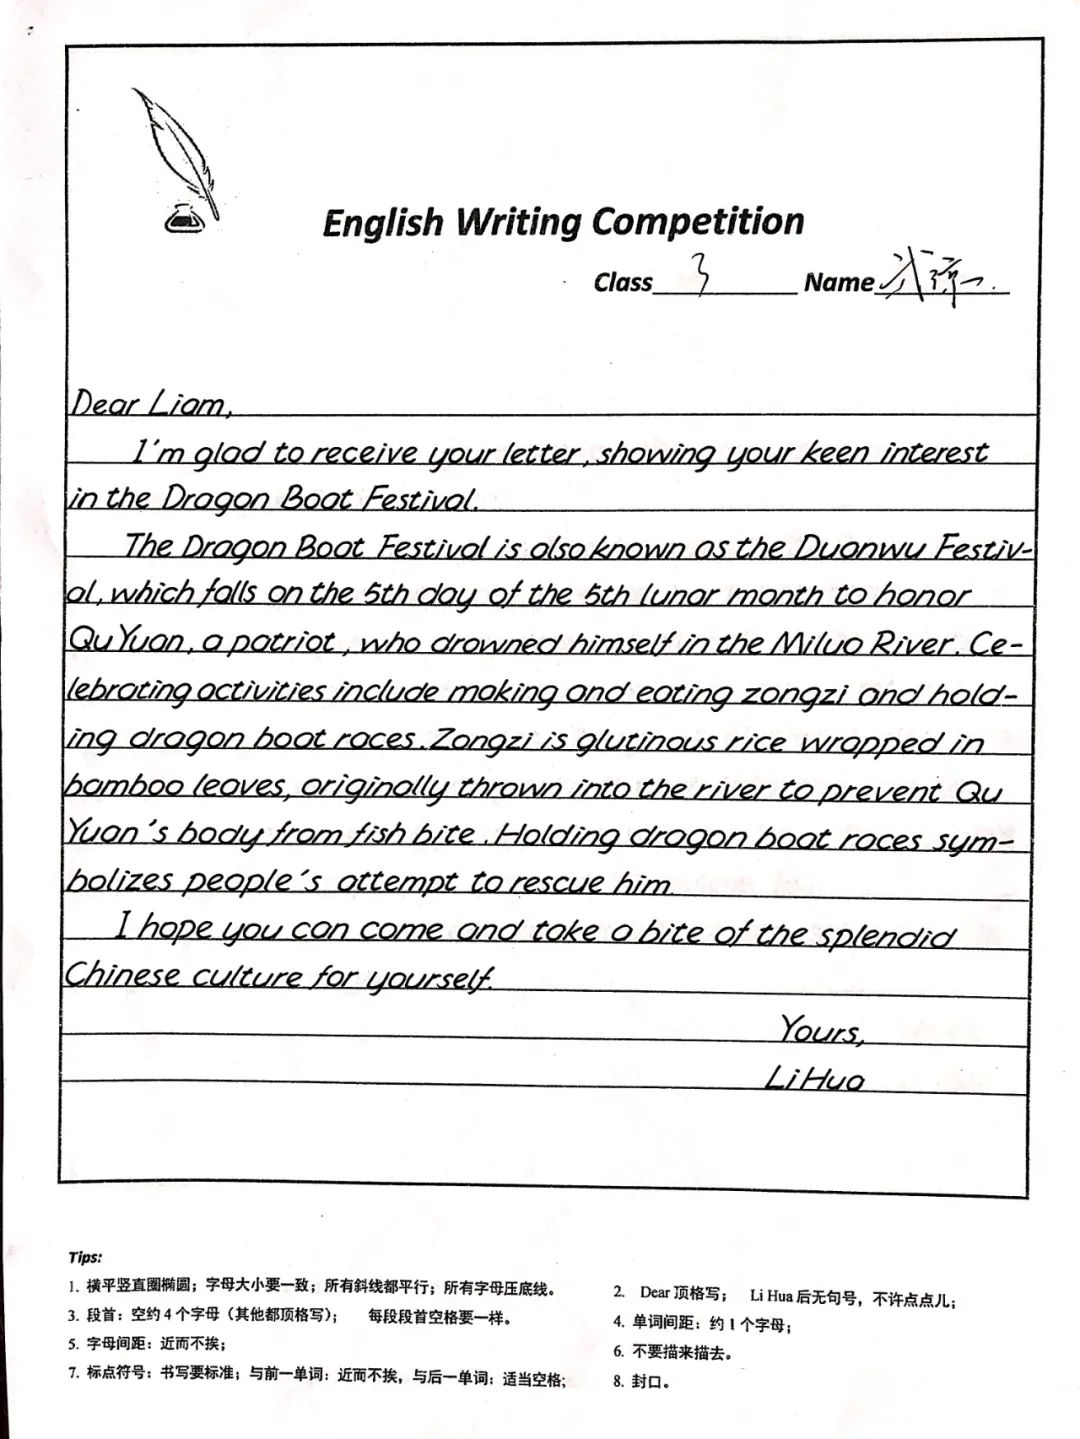 English Writing Competition
Class 3 Name
Dear Liam,
I'm glad to receive your letter, showing your keen interest
in the Dragon Boat Festival.
The Dragon Boat Festival is also known as the Duanwu Festiv-
al, which falls on the 5th day of the 5th lunar month to honor
Qu Yuan, a patriot, who drowned himself in the Miluo River. Ce-
lebrating activities include making and eating zongzi and hold-
ing dragon boat races. Zongzi is glutinous rice wrapped in
bamboo leaves, originally thrown into the river to prevent Qu
Yuan's body from fish bite. Holding dragon boat races sym-
bolizes people's attempt to rescue him.
I hope you can come and take a bite of the splendid
Chinese culture for yourself.
Yours,
Li Hua
Tips:
1. 横平竖直圈椭圆；字母大小要一致；所有斜线都平行；所有字母压底线。
2. Dear 顶格写； Li Hua 后无句号，不许点点儿；
3. 段首：空约 4 个字母（其他都顶格写）； 每段段首空格要一样。
4. 单词间距：约 1 个字母；
5. 字母间距：近而不挨；
6. 不要描来描去。
7. 标点符号：书写要标准；与前一单词：近而不挨，与后一单词：适当空格；
8. 封口。